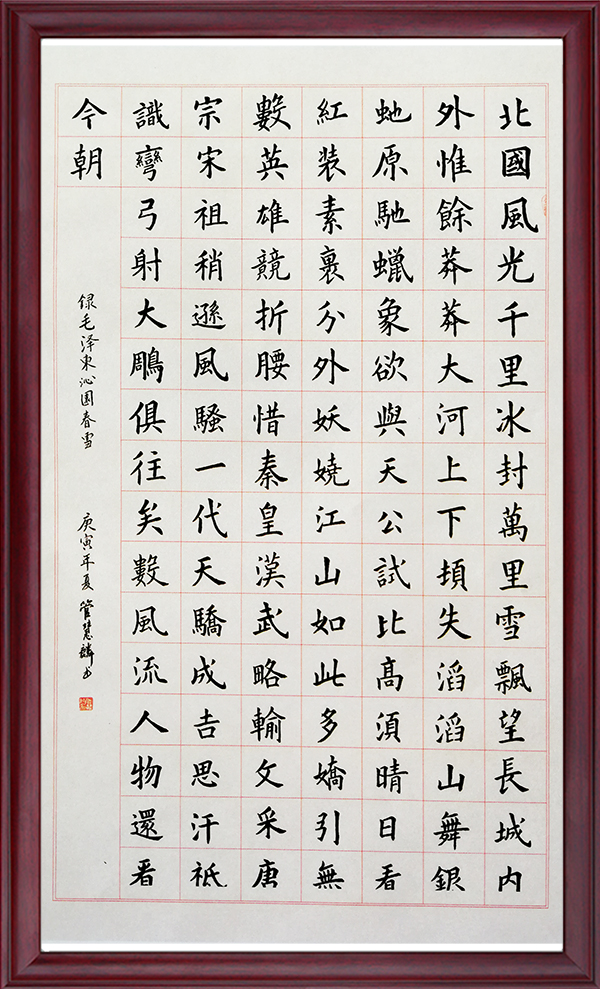 北國風光千里冰封萬里雪飄望長城内
外惟餘莽莽大河上下頓失滔滔山舞銀
虵原馳蠟象欲與天公試比高須晴日看
紅装素裹分外妖嬈江山如此多嬌引無
數英雄競折腰惜秦皇漢武略輸文采唐
宗宋祖稍遜風騷一代天驕成吉思汗祗
識彎弓射大鵰俱往矣數風流人物還看
今朝
録毛泽東沁园春雪 庚寅年夏管慧麟书